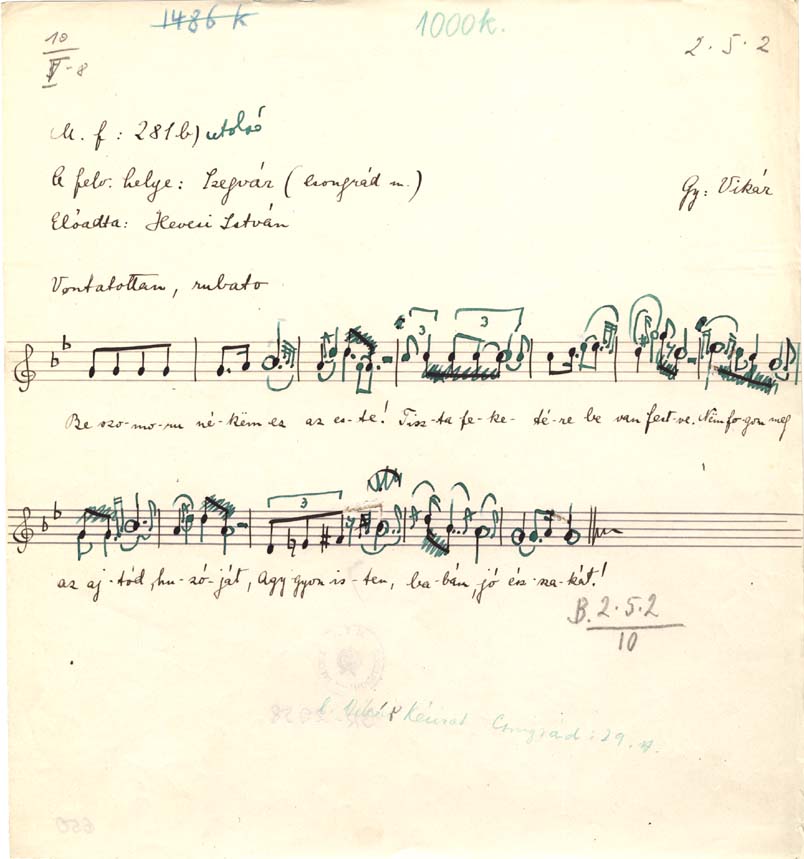 1486 k
1000k.
2.5.2
10
V-8
M. f: 281b) utolsó
A felv. helye: Szegvár (Csongrád m.)
Gy: Vikár
Előadta: Hevesi István
Vontatottan, rubato
3
3
Be szo-mo-ru né-këm ez az es-te! Tisz-ta fe-ke-té-re be van fest-ve. Nëm fo-gom mëg
az aj-tód hu-zó-ját, Agy-gyon is-ten, ba-bám, jó ész-za-kát!
3
B. 2.5.2
10
Vikár kézirat Csongrád: 29.